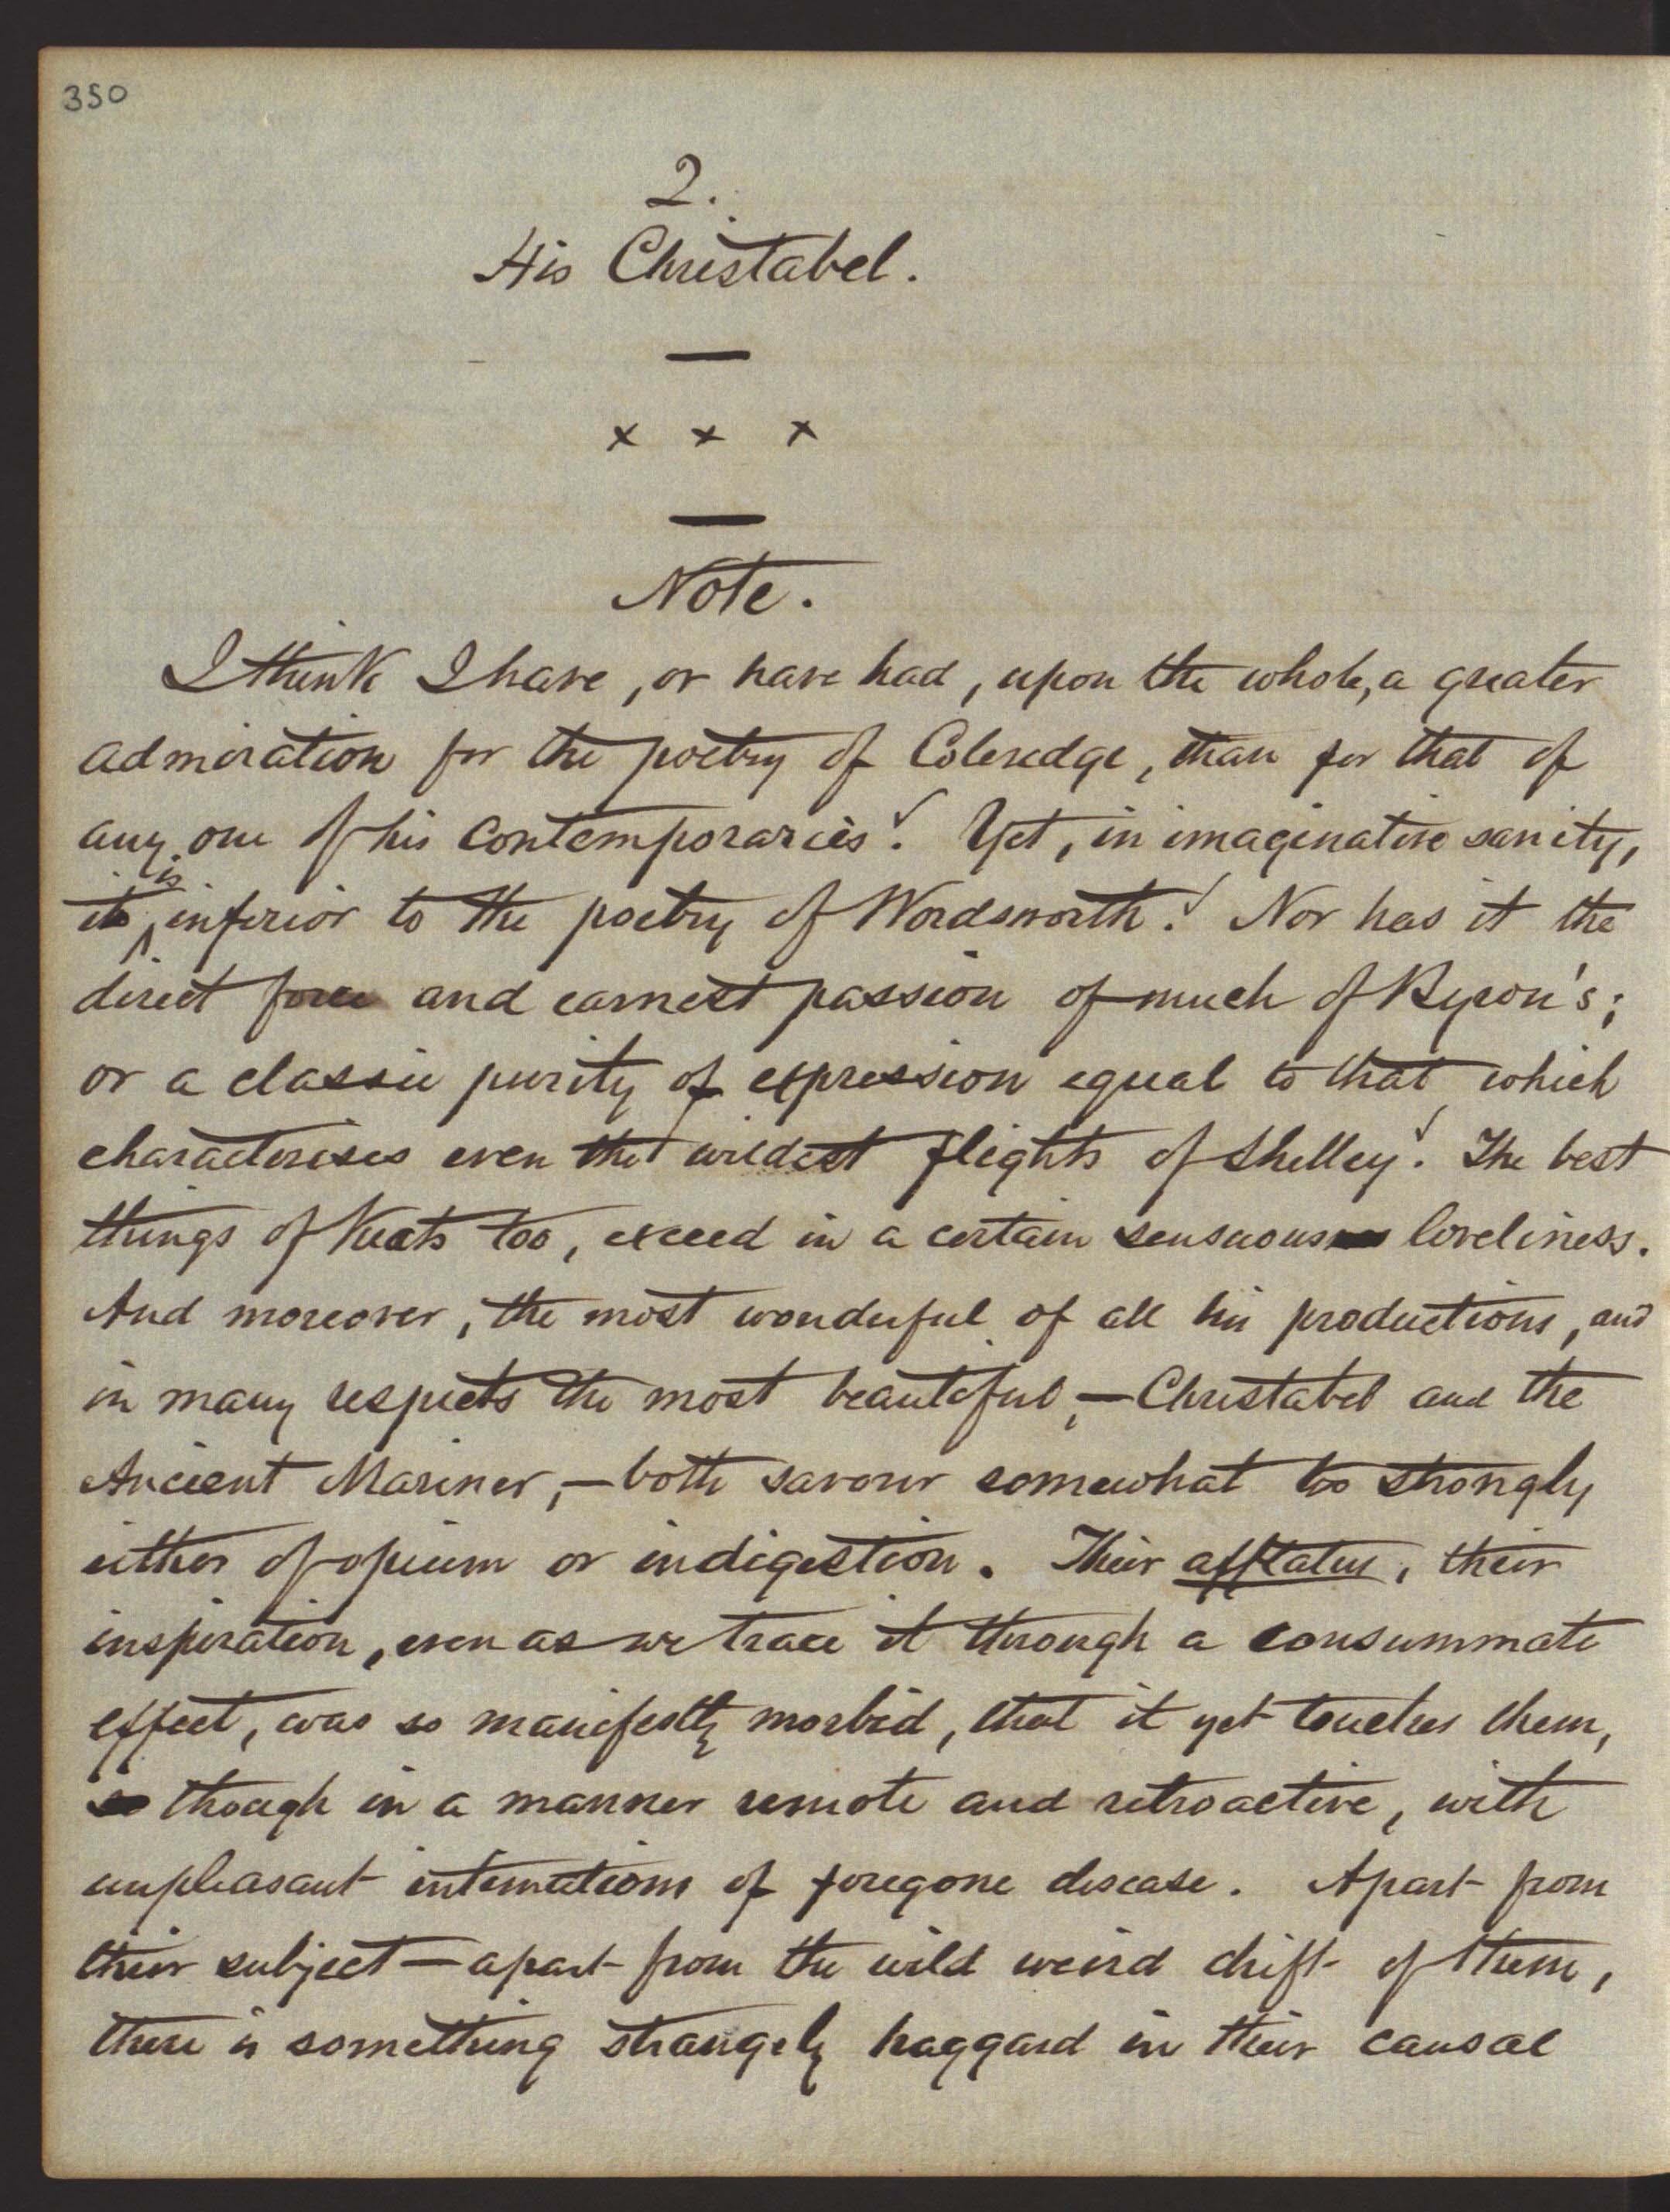 350
2.
His Christabel.
—
x x x
—
Note.
I think I have, or have had, upon the whole, a greater
admiration for the poetry of Coleredge, than for that of
any one of his contemporaries. Yet, in imaginative sanity,
it is inferior to the poetry of Wordsworth. Nor has it the
direct force and earnest passion of much of Byron's;
or a classic purity of expression equal to that which
characterises even the wildest flights of Shelley. The best
things of Keats too, exceed in a certain sensuous loveliness.
And moreover, the most wonderful of all his productions, and
in many respects the most beautiful,—Christabel and the
Ancient Mariner,—both savour somewhat too strongly
either of opium or indigestion. Their afflatus, their
inspiration, even as we trace it through a consummate
effect, was so manifestly morbid, that it yet touches them,
though in a manner remote and retroactive, with
unpleasant intimations of foregone disease. Apart from
their subject—apart from the wild weird drift of them,
there is something strangely haggard in their causal